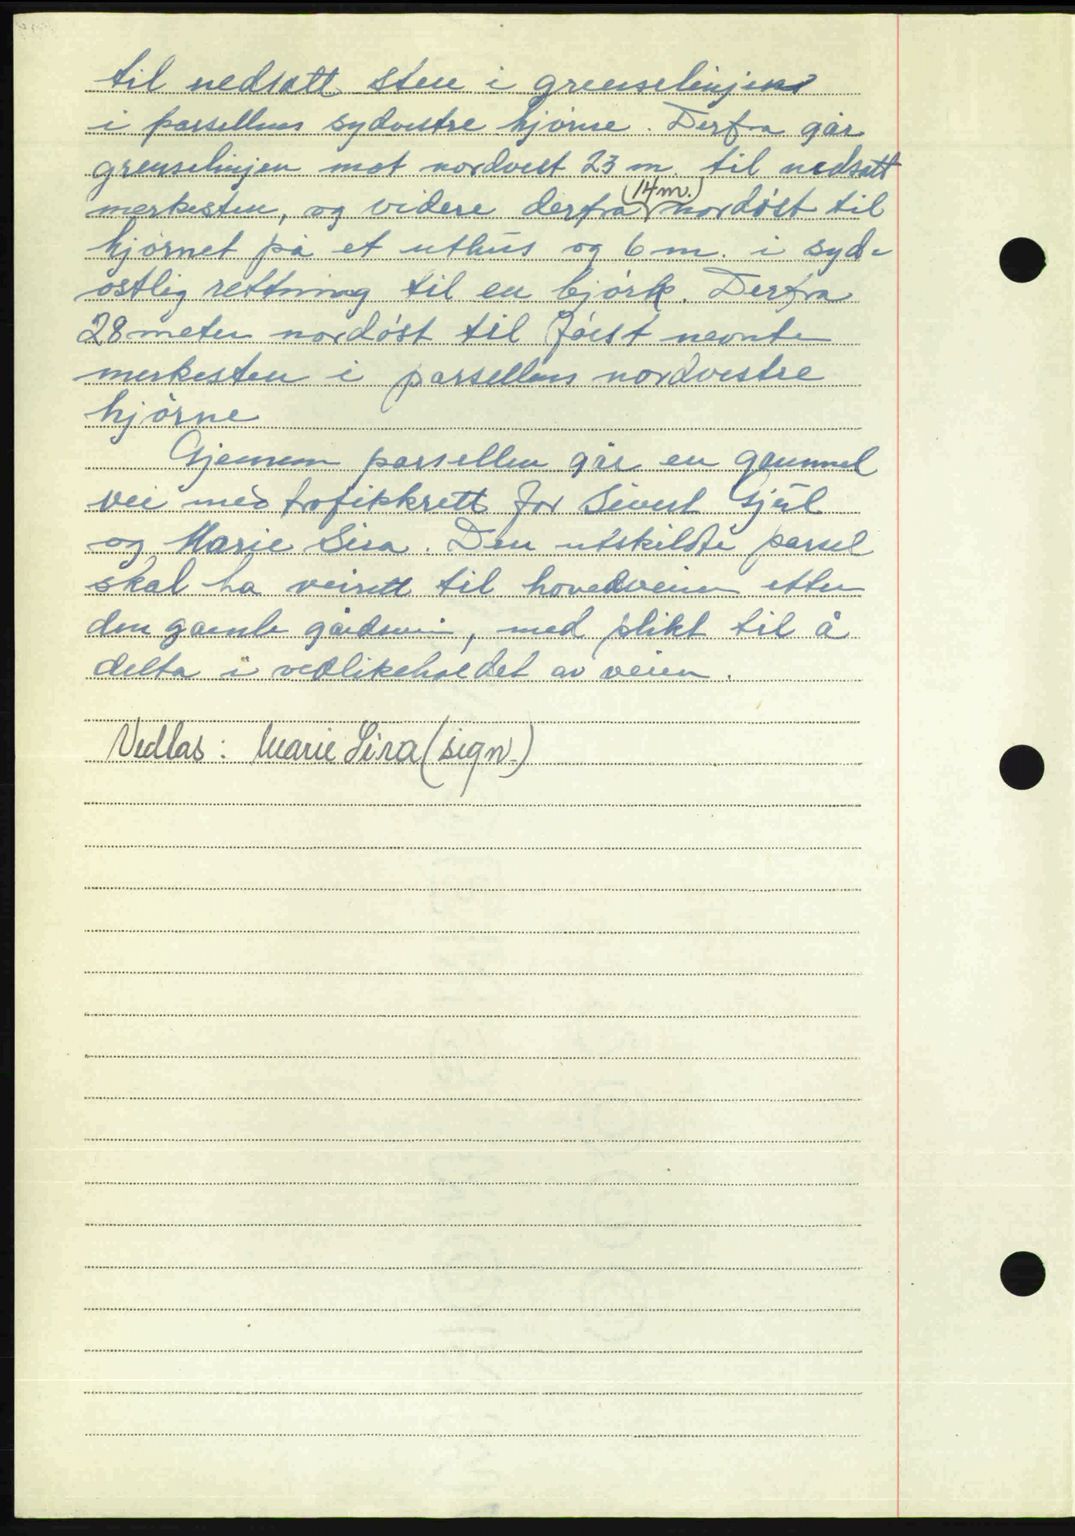 til nedsatt sten i grenselinjen
i parsellens sydvestre hjørne. Derfra går
grenselinjen mot nordvest 23 m. til nedsatt
merkesten, og videre derfra (14 m.) nordøst til
hjørnet på et uthus og 6 m. i syd-
østlig rettning til en bjørk. Derfra
28 meter nordøst til først nevnte
merkesten i parsellens nordvestre
hjørne
Gjennem parsellen går en gammel
vei med trafikkrett for Sivert Gjül
og Marie Sira. Den utskilte parsel
skal ha veirett til hovedveien etter
den gamle gårdsvei, med plikt til å
delta i vedlikeholdet av veien.
Vedlas: Marie Sira (sign.)